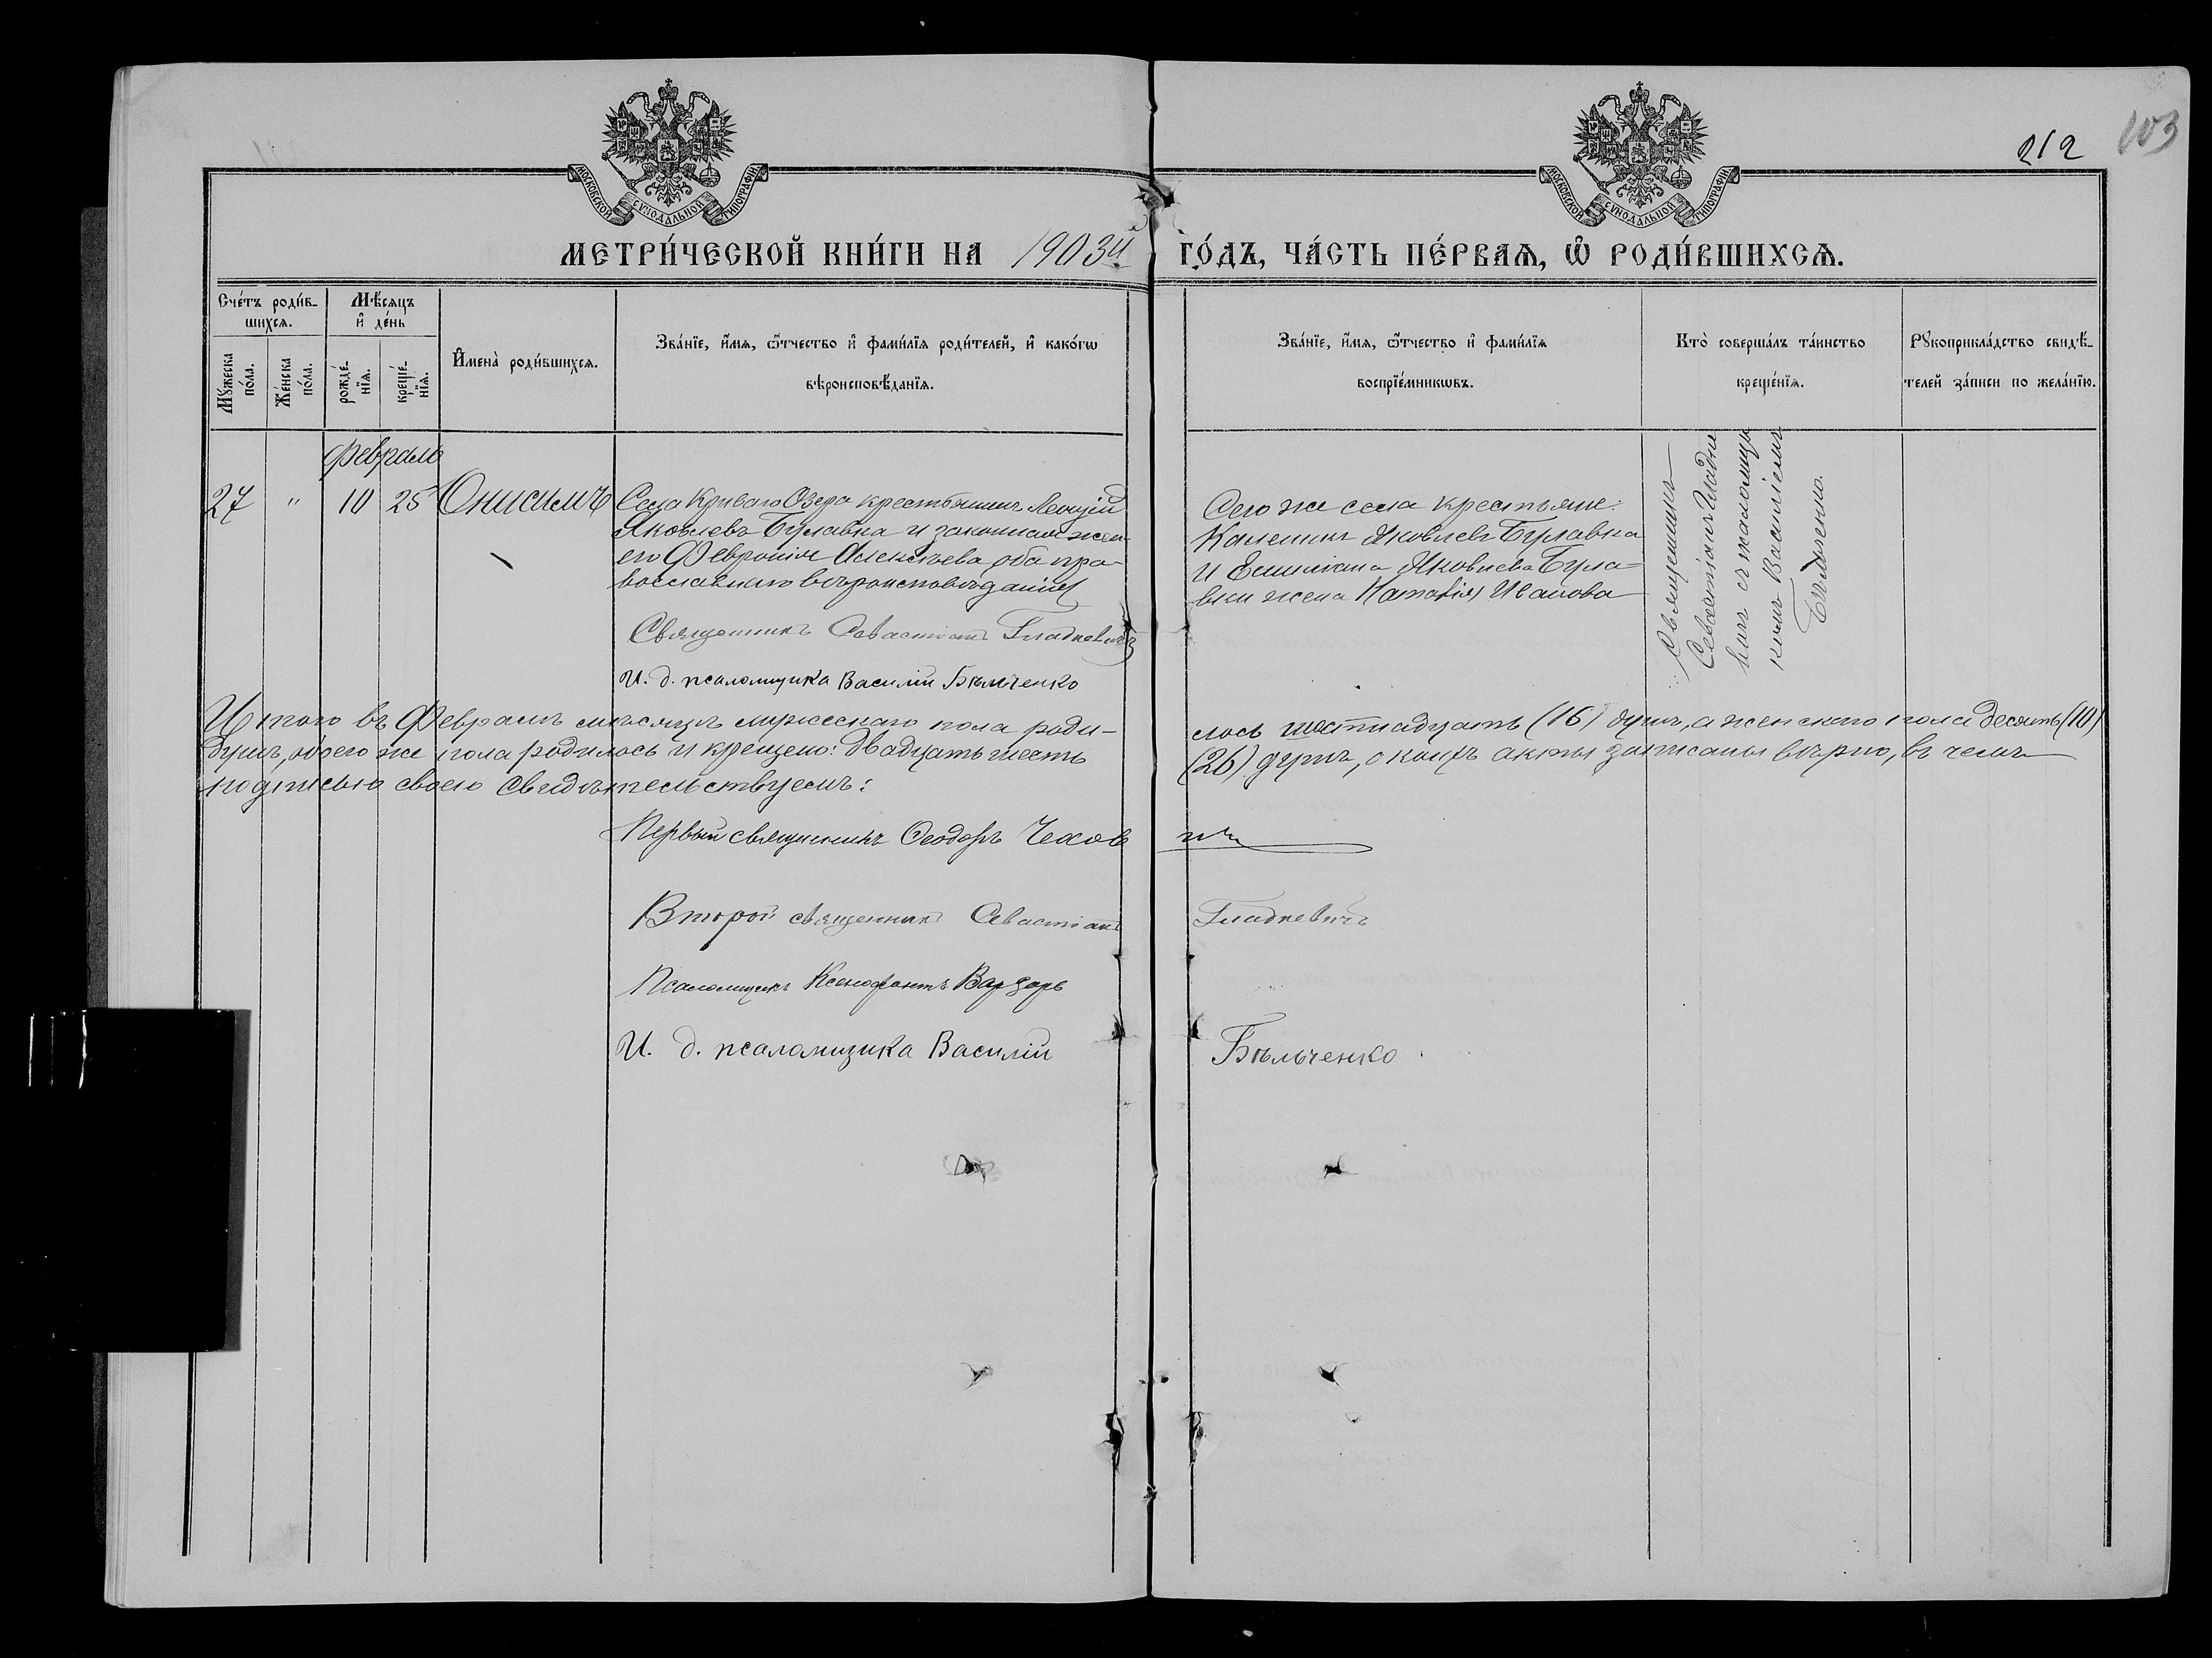 212 103
МОСКОВСКОЙ СѴНОДАЛЬНОЙ ТИПОГРАФІИ.
МОСКОВСКОЙ СѴНОДАЛЬНОЙ ТИПОГРАФІИ.
МЕТРИ́ЧЕСКОЙ КНИ́ГИ НА 1903й ГО́ДЪ, ЧА́СТЬ ПЕ́РВАѦ, Ѽ РОДИ́ВШИХСѦ.
Сче́тъ роди́в-
шихсѧ.
Мꙋ́жеска
по́ла.
Же́нска
по́ла.
Мѣ́сѧцъ
и҆ де́нь
рожде́-
нїѧ.
креще́-
нїѧ.
И҆мена̀ роди́вшихсѧ.
Зва́нїе, и҆́мѧ, ѻ҆́тчество и҆ фами́лїѧ роди́телей, и҆ како́гѡ
вѣроисповѣ́данїѧ.
Зва́нїе, и҆́мѧ, ѻ҆́тчество и҆ фами́лїѧ
воспрїе́мникѡвъ.
Кто̀ соверша́лъ та́инство
креще́нїѧ.
Рꙋкоприкла́дство свидѣ́-
телей за́писи по жела́нїю.
Февраль
27 " 10 25 Онисимъ
Села Криваго Озера крестьянинъ Леонтій
Яковлевъ Булавка и законная жена
его Феврония Алексѣева, оба пра-
вославнаго вѣроисповѣданія
Священникъ Севастіанъ Гладкевичъ
И. д. псаломщика Василій Бѣльченко
Сего же села крестьяне:
Калиникъ Яковлевъ Булавка
и Емиліана Яковлева Була-
вки жена Наталія Иванова
Священникъ
Севастіанъ Гладке-
вичъ съ псаломщи-
комъ Василіемъ
Бѣльченко.
Итого въ Февралѣ мѣсяцѣ мужескаго пола роди-
лось шестнадцать (16) душъ, а женского пола десять (10)
душъ, обоего же пола родилось и крещено: двадцать шесть
(26) душъ, о коихъ акты записаны вѣрно, въ чемъ
подписью своею свидѣтельствуемъ:
Первый священникъ Ѳеодоръ Чехович
Второй священникъ Севастіанъ Гладкевичъ
Псаломщикъ Ксенофонтъ Варзарь
И. д. псаломщика Василій Бѣльченко